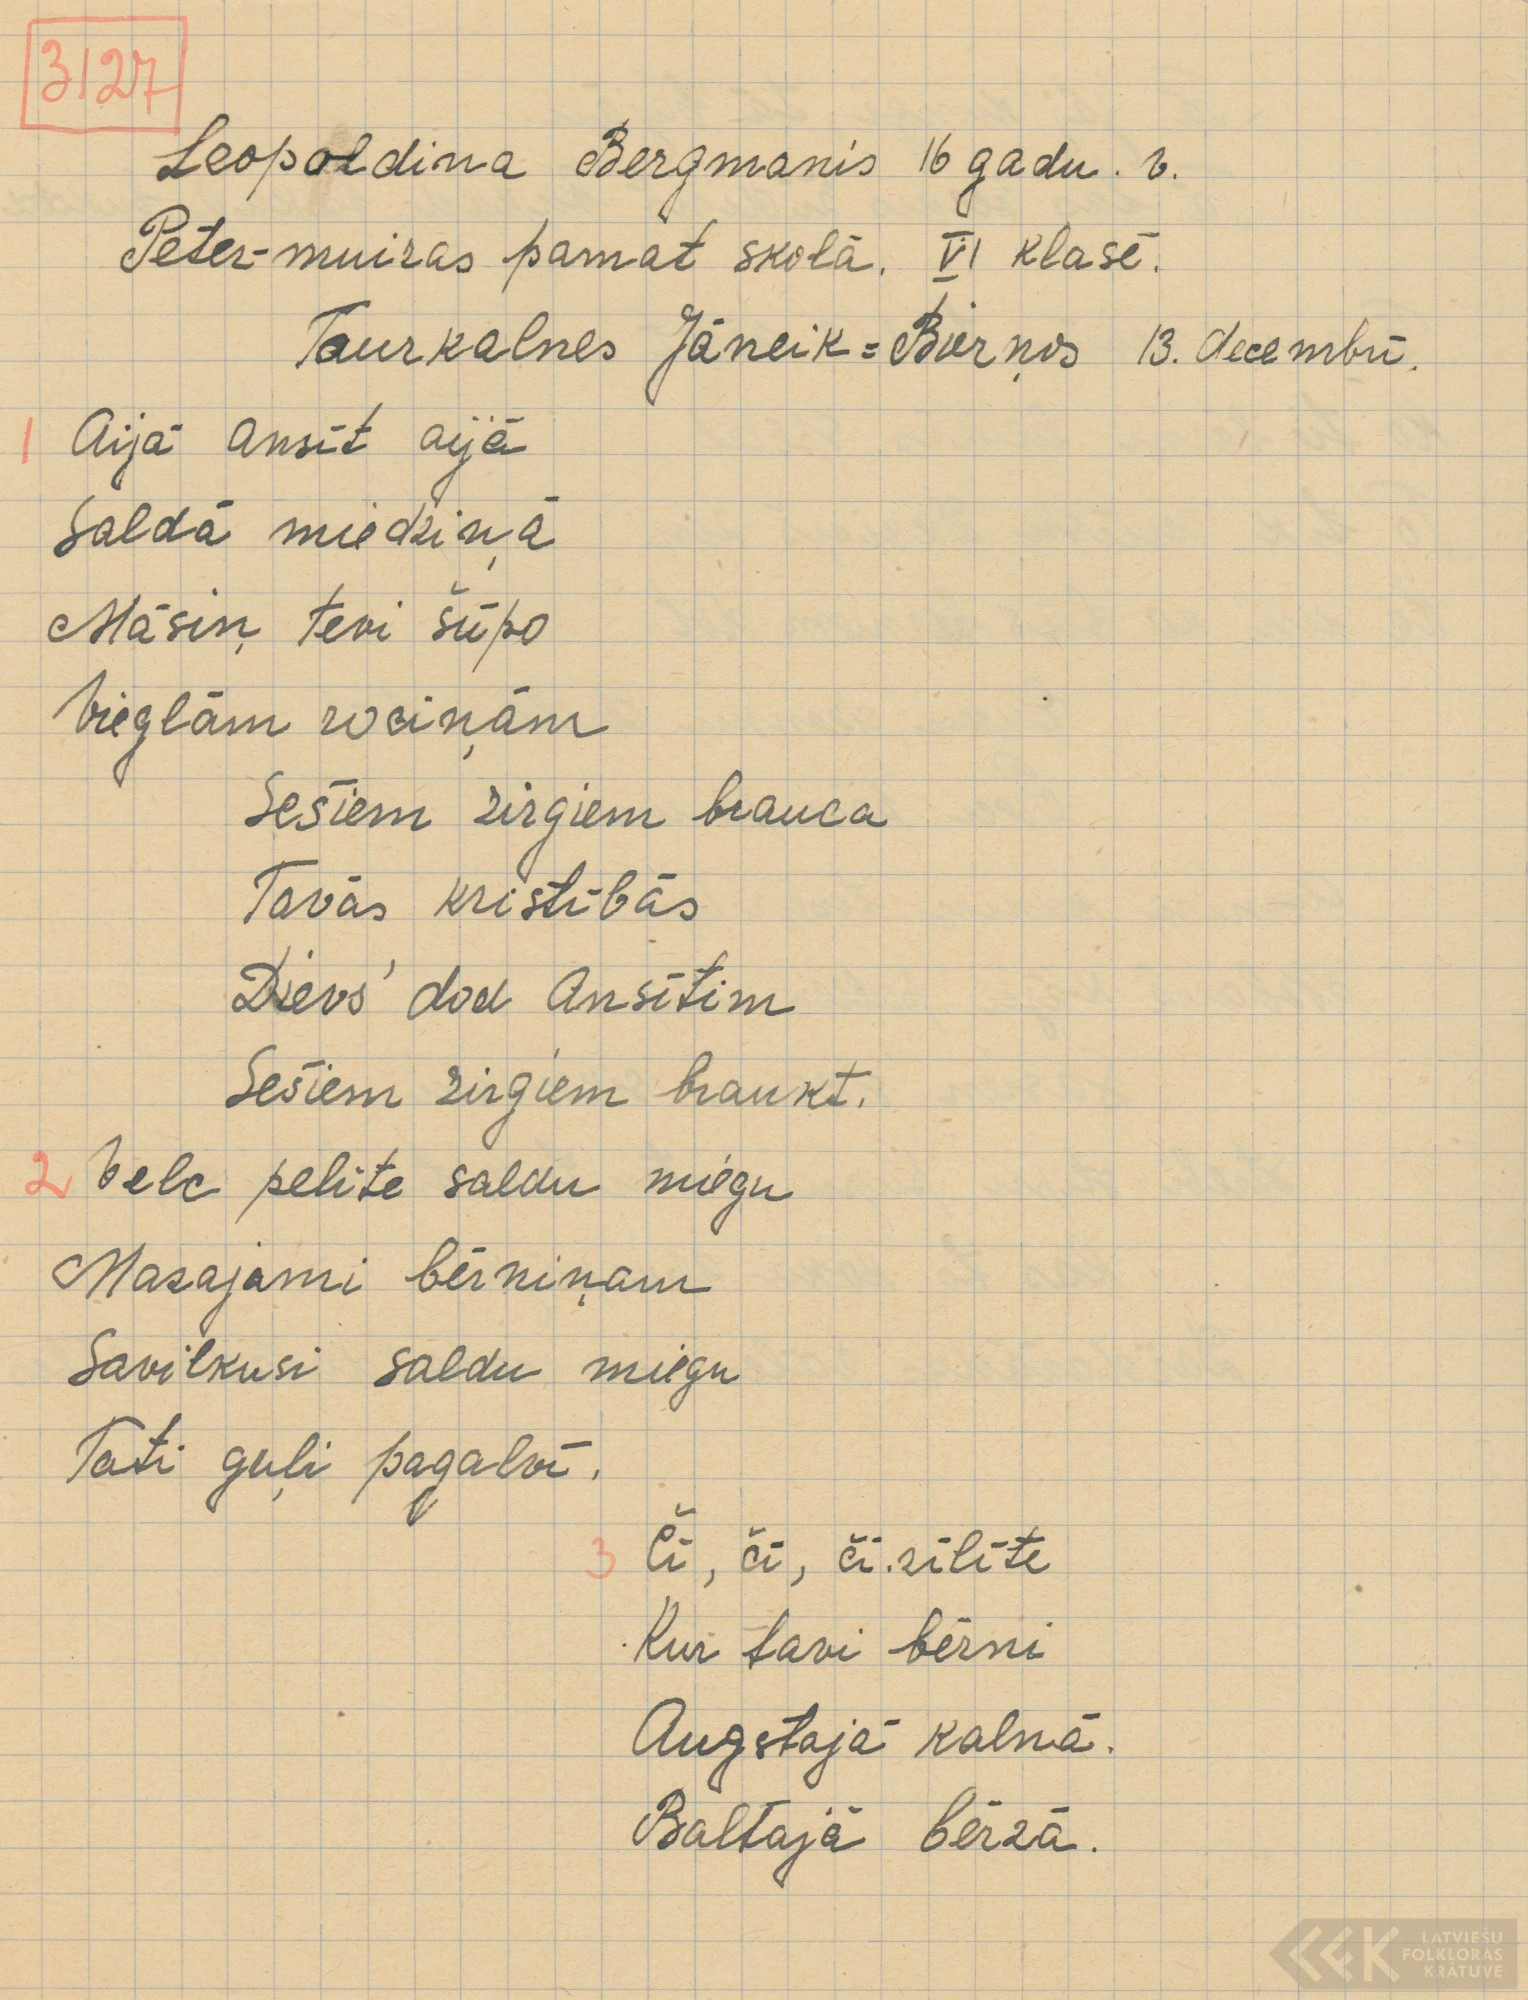 3127
Leopoldina Bergmanis 16 gadu. v.
Peter-muiras pamat skolā. VI klasē.
Taurkalnes Jāneik=Bierņos 13. decembrī.
1 Aijā Ansīt aijā
Saldā miedziņā
Māsiņ tevi šūpo
Vieglām rociņām
Sešiem zirgiem brauca
Tavās kristībās
Dievs' dod Ansītim
Sešiem zirgiem braukt.
2 Velc pelīte saldu miegu
Mazajami bērniņam
Savilkusi saldu miegu
Tati guļi pagalvī.
3 Čī, čī, čī. zīlīte
Kur tavi bērni
Augstajā kalnā.
Baltajā bērzā.
LATVIEŠU
FOLKLORAS
KRĀTUVE